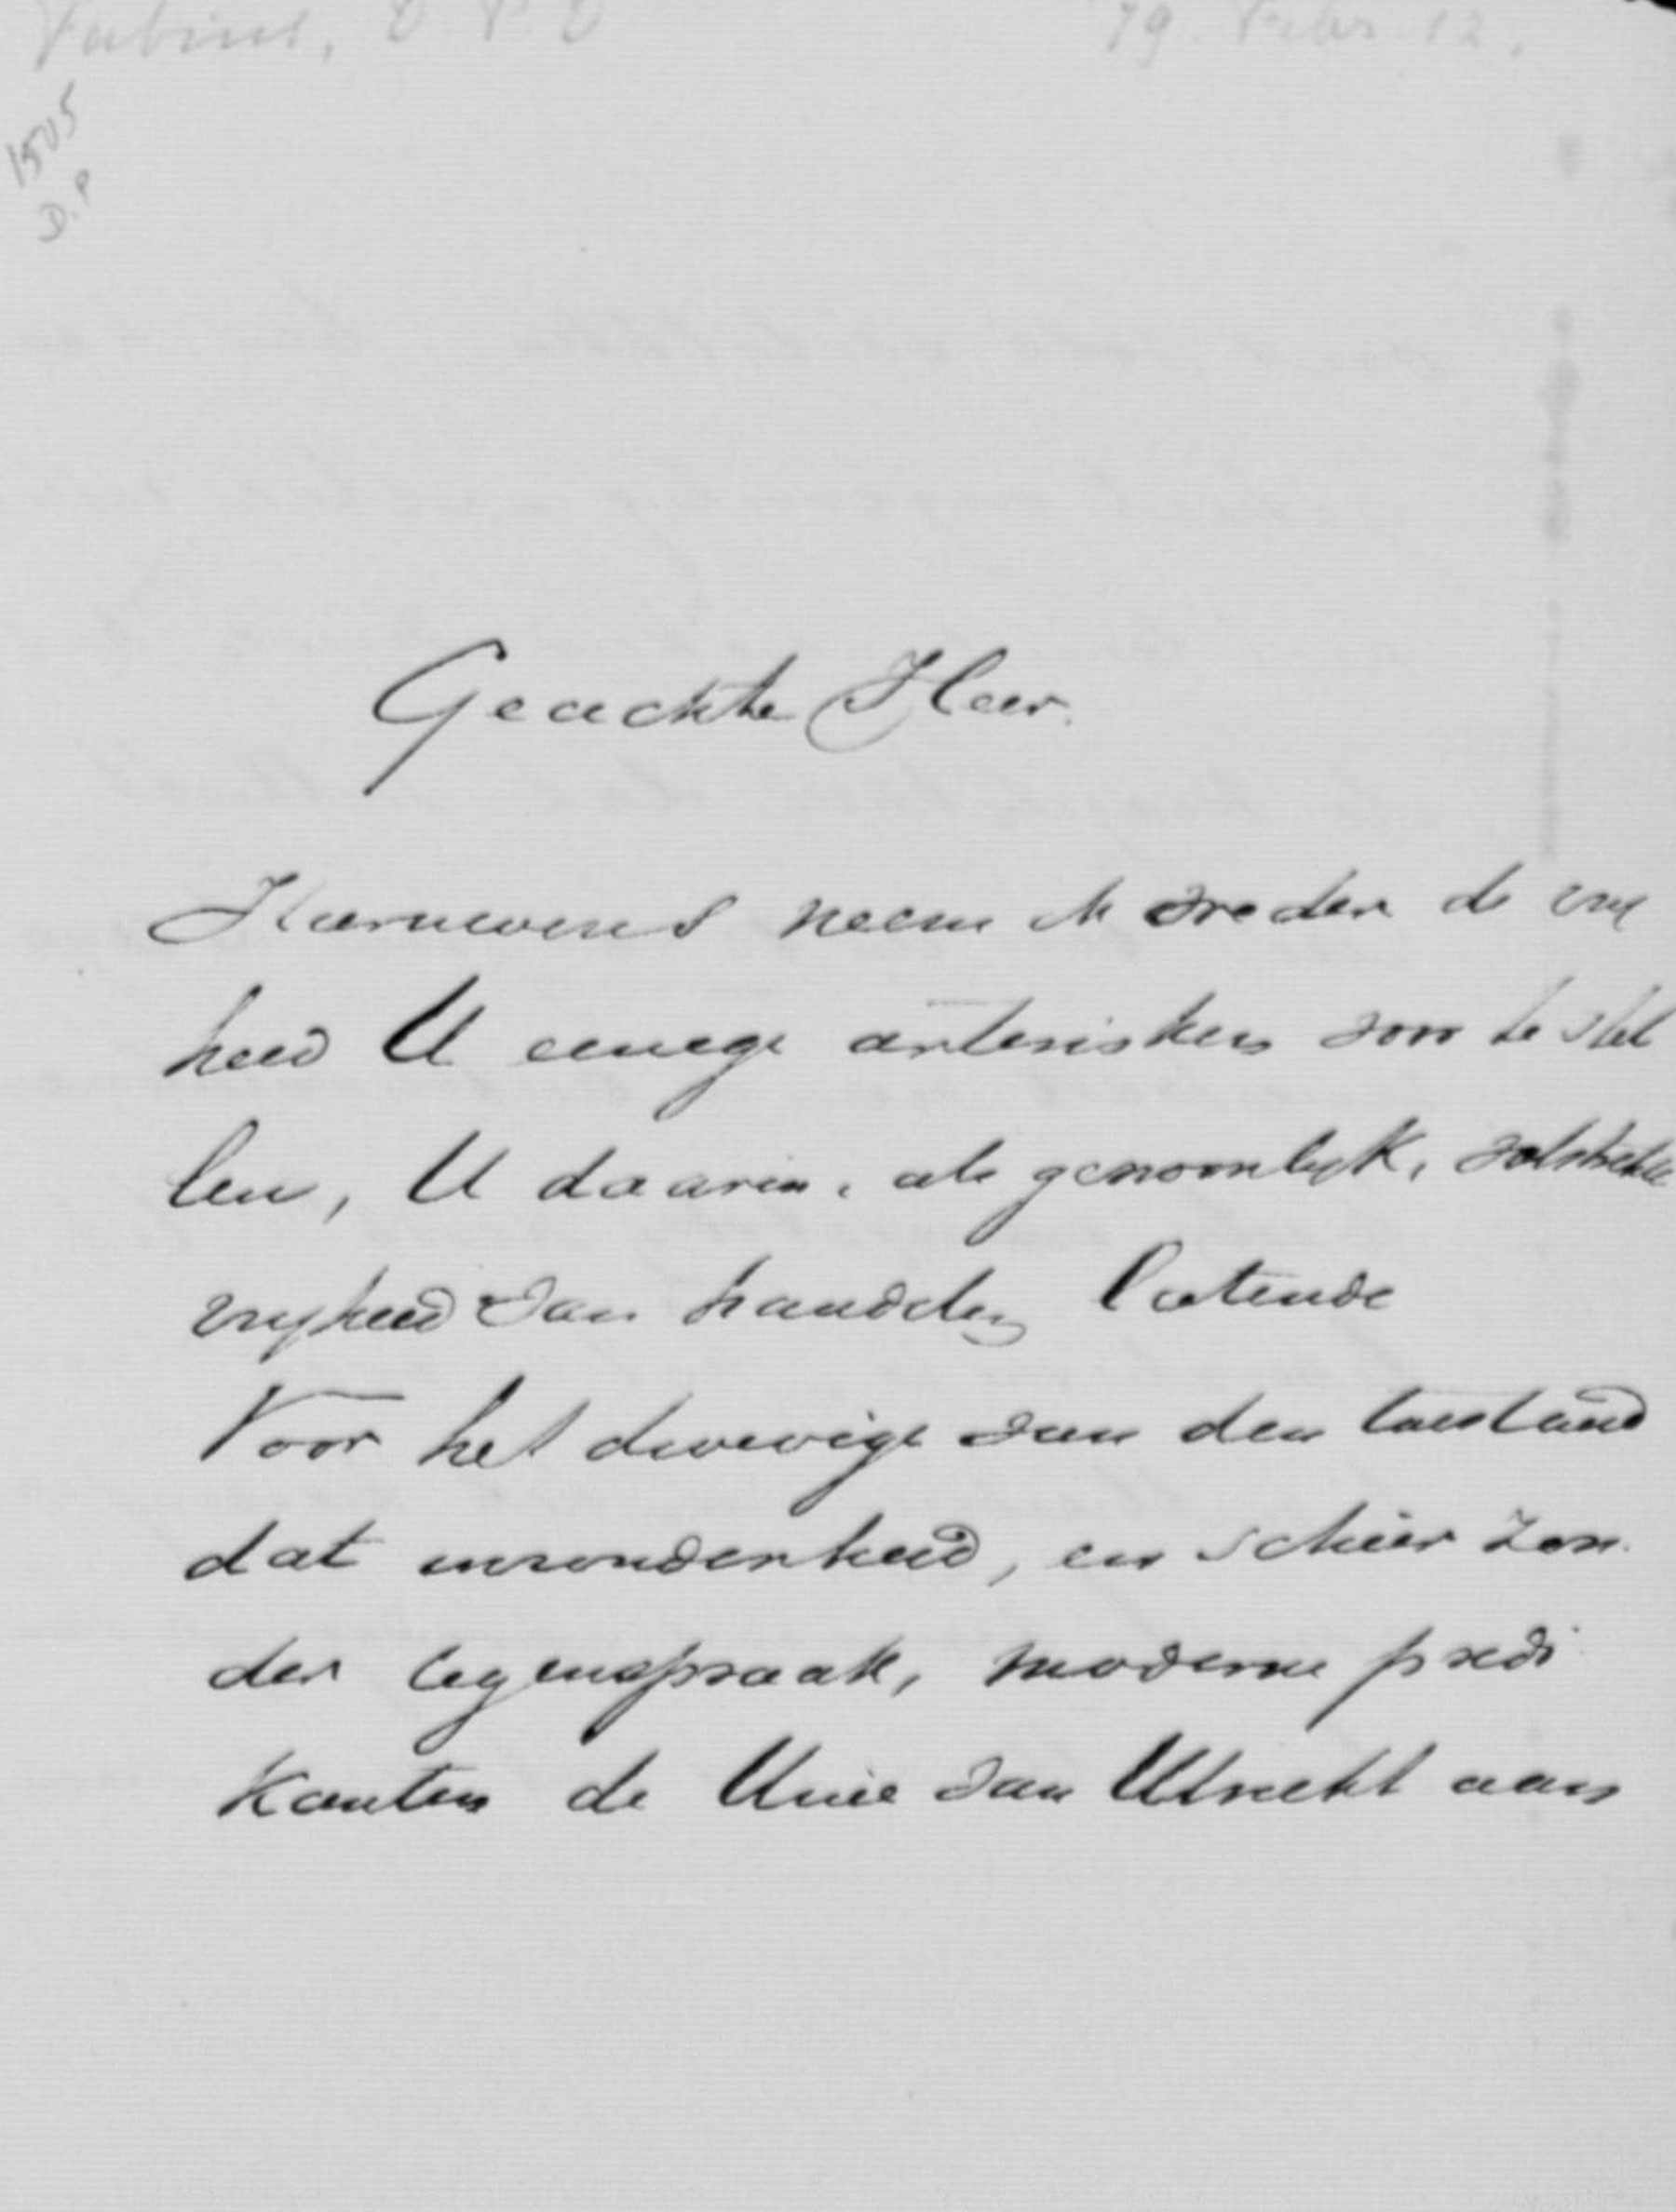 Fabius, D. P. D 79. Febr. 12.
1505
D.P
Geachte Heer.
Hiernevens neem ik weder de vrij
heid U eenige asterisken voor te stel
len, U daarin, als gewoonlijk, volstrekte
vrijheid van handeling latende
Voor het droevige van den toestand
dat inzonderheid, en schier zon-
der tegenspraak, moderne predi
kanten de Unie van Utrecht aan